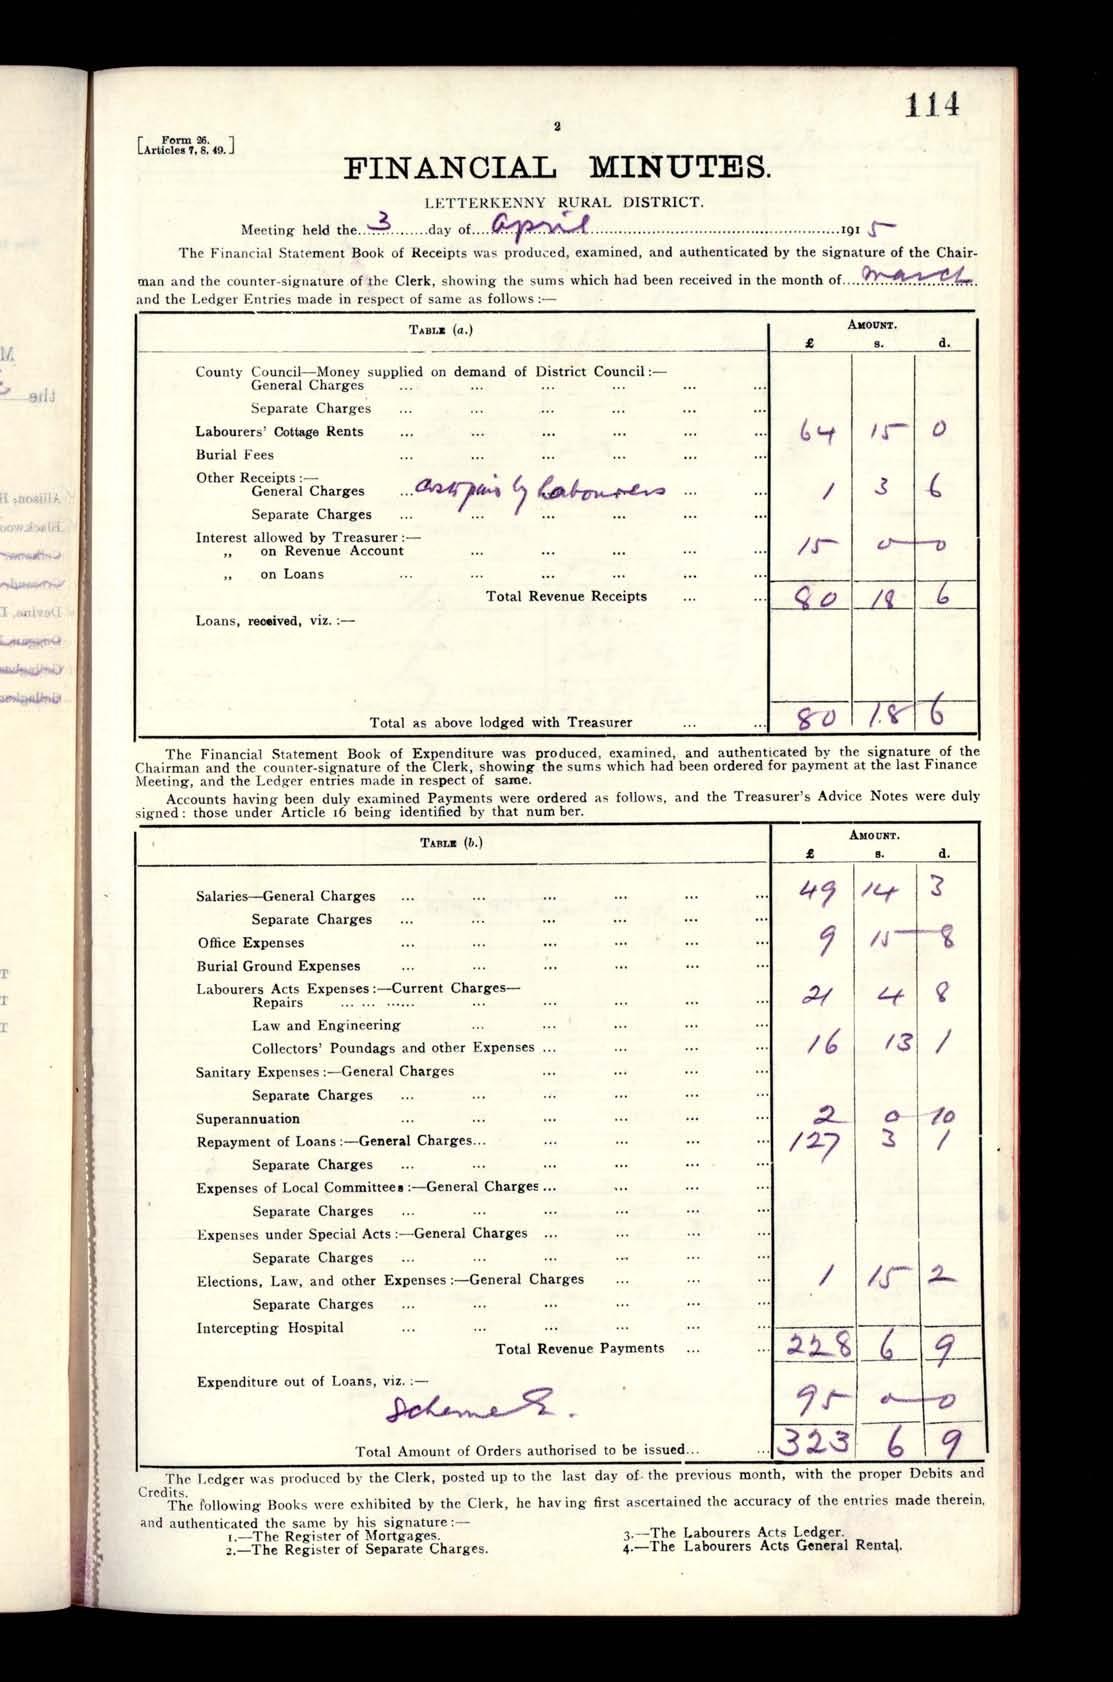 114
2
[Form 26.
Articles 7, 8. 49.]
FINANCIAL MINUTES.
LETTERKENNY RURAL DISTRICT.
Meeting held the...3......day of....April...191 5
The Financial Statement Book of Receipts was produced, examined, and authenticated by the signature of the Chair-
man and the counter-signature of the Clerk, showing the sums which had been received in the month of....March....
and the Ledger Entries made in respect of same as follows :—
TABLE (a.) AMOUNT.
£ s. d.
County Council—Money supplied on demand of District Council :—
General Charges ... ... ... ... ... ...
Separate Charges ... ... ... ... ... ...
Labourers' Cottage Rents ... ... ... ... ... ... 64 15 0
Burial Fees ... ... ... ... ... ...
Other Receipts :—
General Charges ... by Labourers ... ... 1 3 6
Separate Charges ... ... ... ... ... ...
Interest allowed by Treasurer :—
„ on Revenue Account ... ... ... ... ... 15 0 0
„ on Loans ... ... ... ... ... ...
Total Revenue Receipts ... ... 80 18 6
Loans, received, viz. :—
Total as above lodged with Treasurer ... ... 80 18 6
The Financial Statement Book of Expenditure was produced, examined, and authenticated by the signature of the
Chairman and the counter-signature of the Clerk, showing the sums which had been ordered for payment at the last Finance
Meeting, and the Ledger entries made in respect of same.
Accounts having been duly examined Payments were ordered as follows, and the Treasurer's Advice Notes were duly
signed : those under Article 16 being identified by that num ber.
TABLE (b.) AMOUNT.
£ s. d.
Salaries—General Charges ... ... ... ... ... ... 49 14 3
Separate Charges ... ... ... ... ... ...
Office Expenses ... ... ... ... ... ... 9 15 8
Burial Ground Expenses ... ... ... ... ... ...
Labourers Acts Expenses :—Current Charges—
Repairs ... ... ...... ... ... ... ... ... 21 4 8
Law and Engineering ... ... ... ... ...
Collectors' Poundags and other Expenses ... ... ... ... 16 13 1
Sanitary Expenses :—General Charges ... ... ... ...
Separate Charges ... ... ... ... ... ...
Superannuation ... ... ... ... ... ... 2 0 10
Repayment of Loans :—General Charges... ... ... ... ... 127 3 1
Separate Charges ... ... ... ... ... ...
Expenses of Local Committees :—General Charges ... ... ... ...
Separate Charges ... ... ... ... ... ...
Expenses under Special Acts :—General Charges ... ... ... ...
Separate Charges ... ... ... ... ... ...
Elections, Law, and other Expenses :—General Charges ... ... ... 1 15 2
Separate Charges ... ... ... ... ... ...
Intercepting Hospital ... ... ... ... ... ...
Total Revenue Payments ... ... 228 6 9
Expenditure out of Loans, viz. :— 95 0 0
Scheme
Total Amount of Orders authorised to be issued... ... 323 6 9
The Ledger was produced by the Clerk, posted up to the last day of the previous month, with the proper Debits and
Credits.
The following Books were exhibited by the Clerk, he having first ascertained the accuracy of the entries made therein,
and authenticated the same by his signature :—
1.—The Register of Mortgages. 3.—The Labourers Acts Ledger.
2.—The Register of Separate Charges. 4.—The Labourers Acts General Rental.